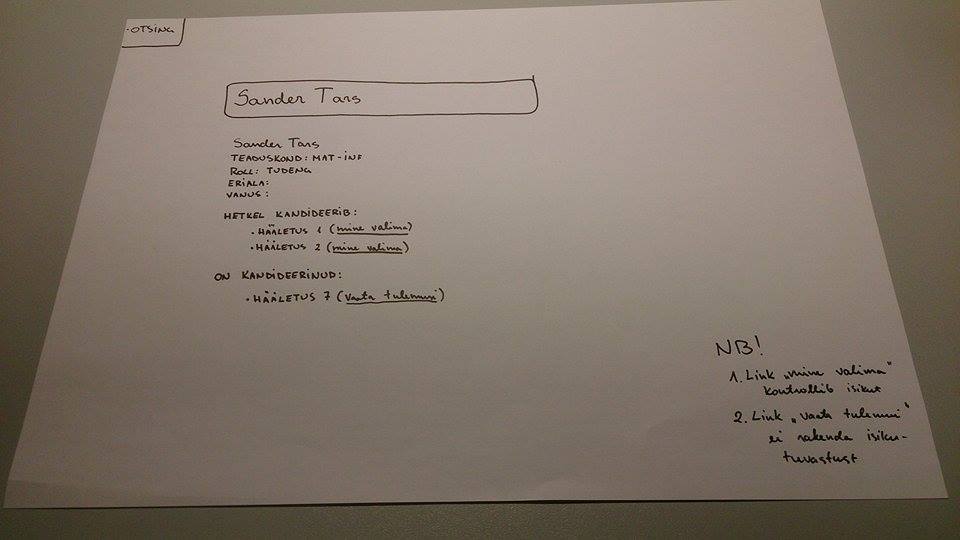 -OTSING
Sander Tars
Sander Tars
TEADUSKOND: MAT-INF
ROLL: TUDENG
ERIALA:
VANUS:
HETKEL KANDIDEERIB:
• HÄÄLETUS 1 (mine valima)
• HÄÄLETUS 2 (mine valima)
ON KANDIDEERINUD:
• HÄÄLETUS 7 (vaata tulemusi)
NB!
1. Link „mine valima"
kontrollib isikut
2. Link „vaata tulemusi"
ei rakenda isiku-
tuvastust